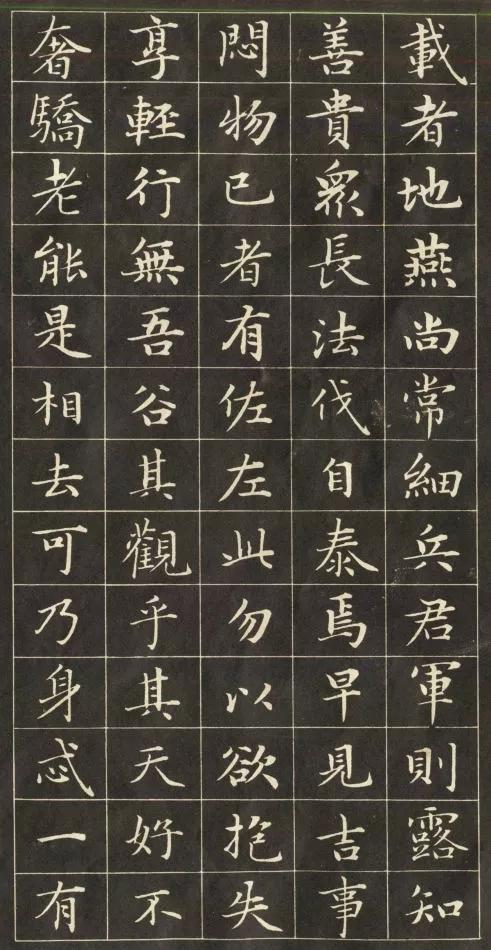 載者地燕尚常細兵君軍則露知
善貴眾長法伐自泰焉早見吉事
悶物已者有佐左此勿以欲抱失
享輕行無吾谷其觀乎其天好不
奢驕老能是相去可乃身忒一有